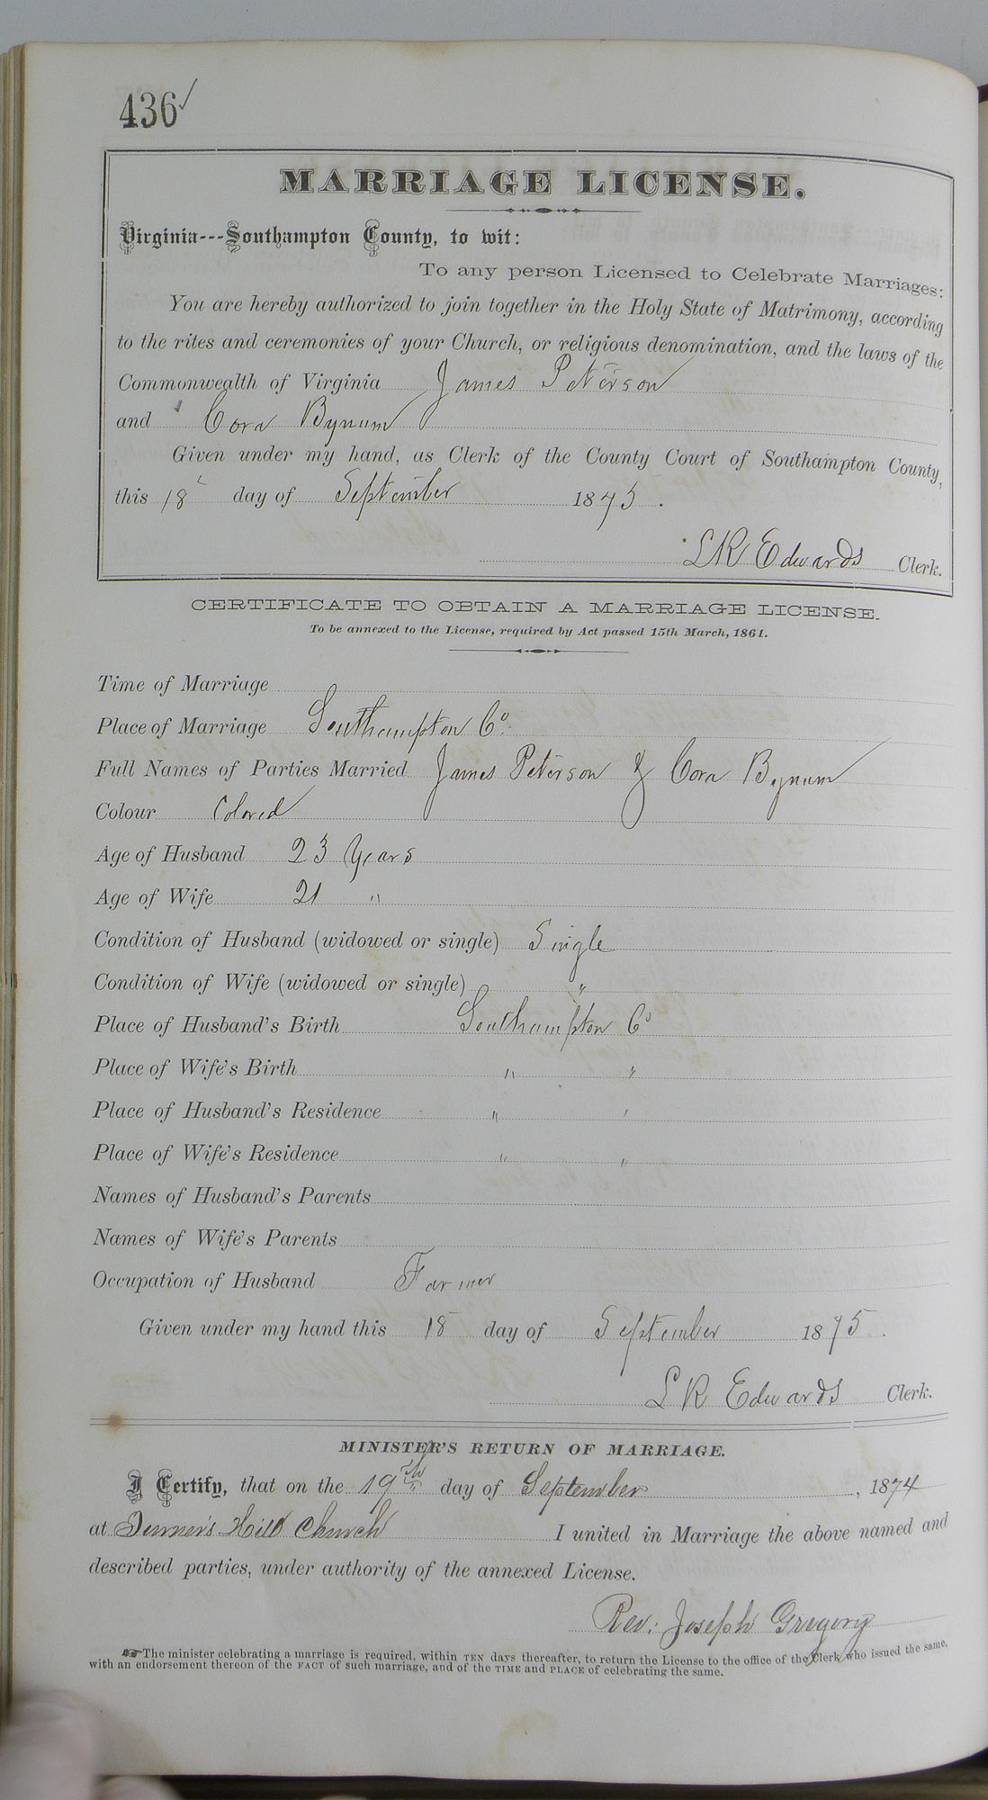 436✓
MARRIAGE LICENSE.
Virginia---Southampton County, to wit:
To any person Licensed to Celebrate Marriages:
You are hereby authorized to join together in the Holy State of Matrimony, according
to the rites and ceremonies of your Church, or religious denomination, and the laws of the
Commonwealth of Virginia James Peterson
and Cora Bynum
Given under my hand, as Clerk of the County Court of Southampton County,
this 18 day of September 1875.
L R Edwards Clerk.
CERTIFICATE TO OBTAIN A MARRIAGE LICENSE.
To be annexed to the License, required by Act passed 15th March, 1861.
Time of Marriage
Place of Marriage Southampton Co.
Full Names of Parties Married James Peterson & Cora Bynum
Colour Colored
Age of Husband 23 Years
Age of Wife 21 "
Condition of Husband (widowed or single) Single
Condition of Wife (widowed or single) "
Place of Husband's Birth Southampton Co
Place of Wife's Birth " "
Place of Husband's Residence " "
Place of Wife's Residence " "
Names of Husband's Parents
Names of Wife's Parents
Occupation of Husband Farmer
Given under my hand this 18 day of September 1875.
L R Edwards Clerk.
MINISTER'S RETURN OF MARRIAGE.
I Certify, that on the 19th day of September, 1874
at Turner's Hill Church I united in Marriage the above named and
described parties, under authority of the annexed License.
Rev. Joseph Gregory
☞The minister celebrating a marriage is required, within TEN days thereafter, to return the License to the office of the Clerk who issued the same,
with an endorsement thereon of the FACT of such marriage, and of the TIME and PLACE of celebrating the same.